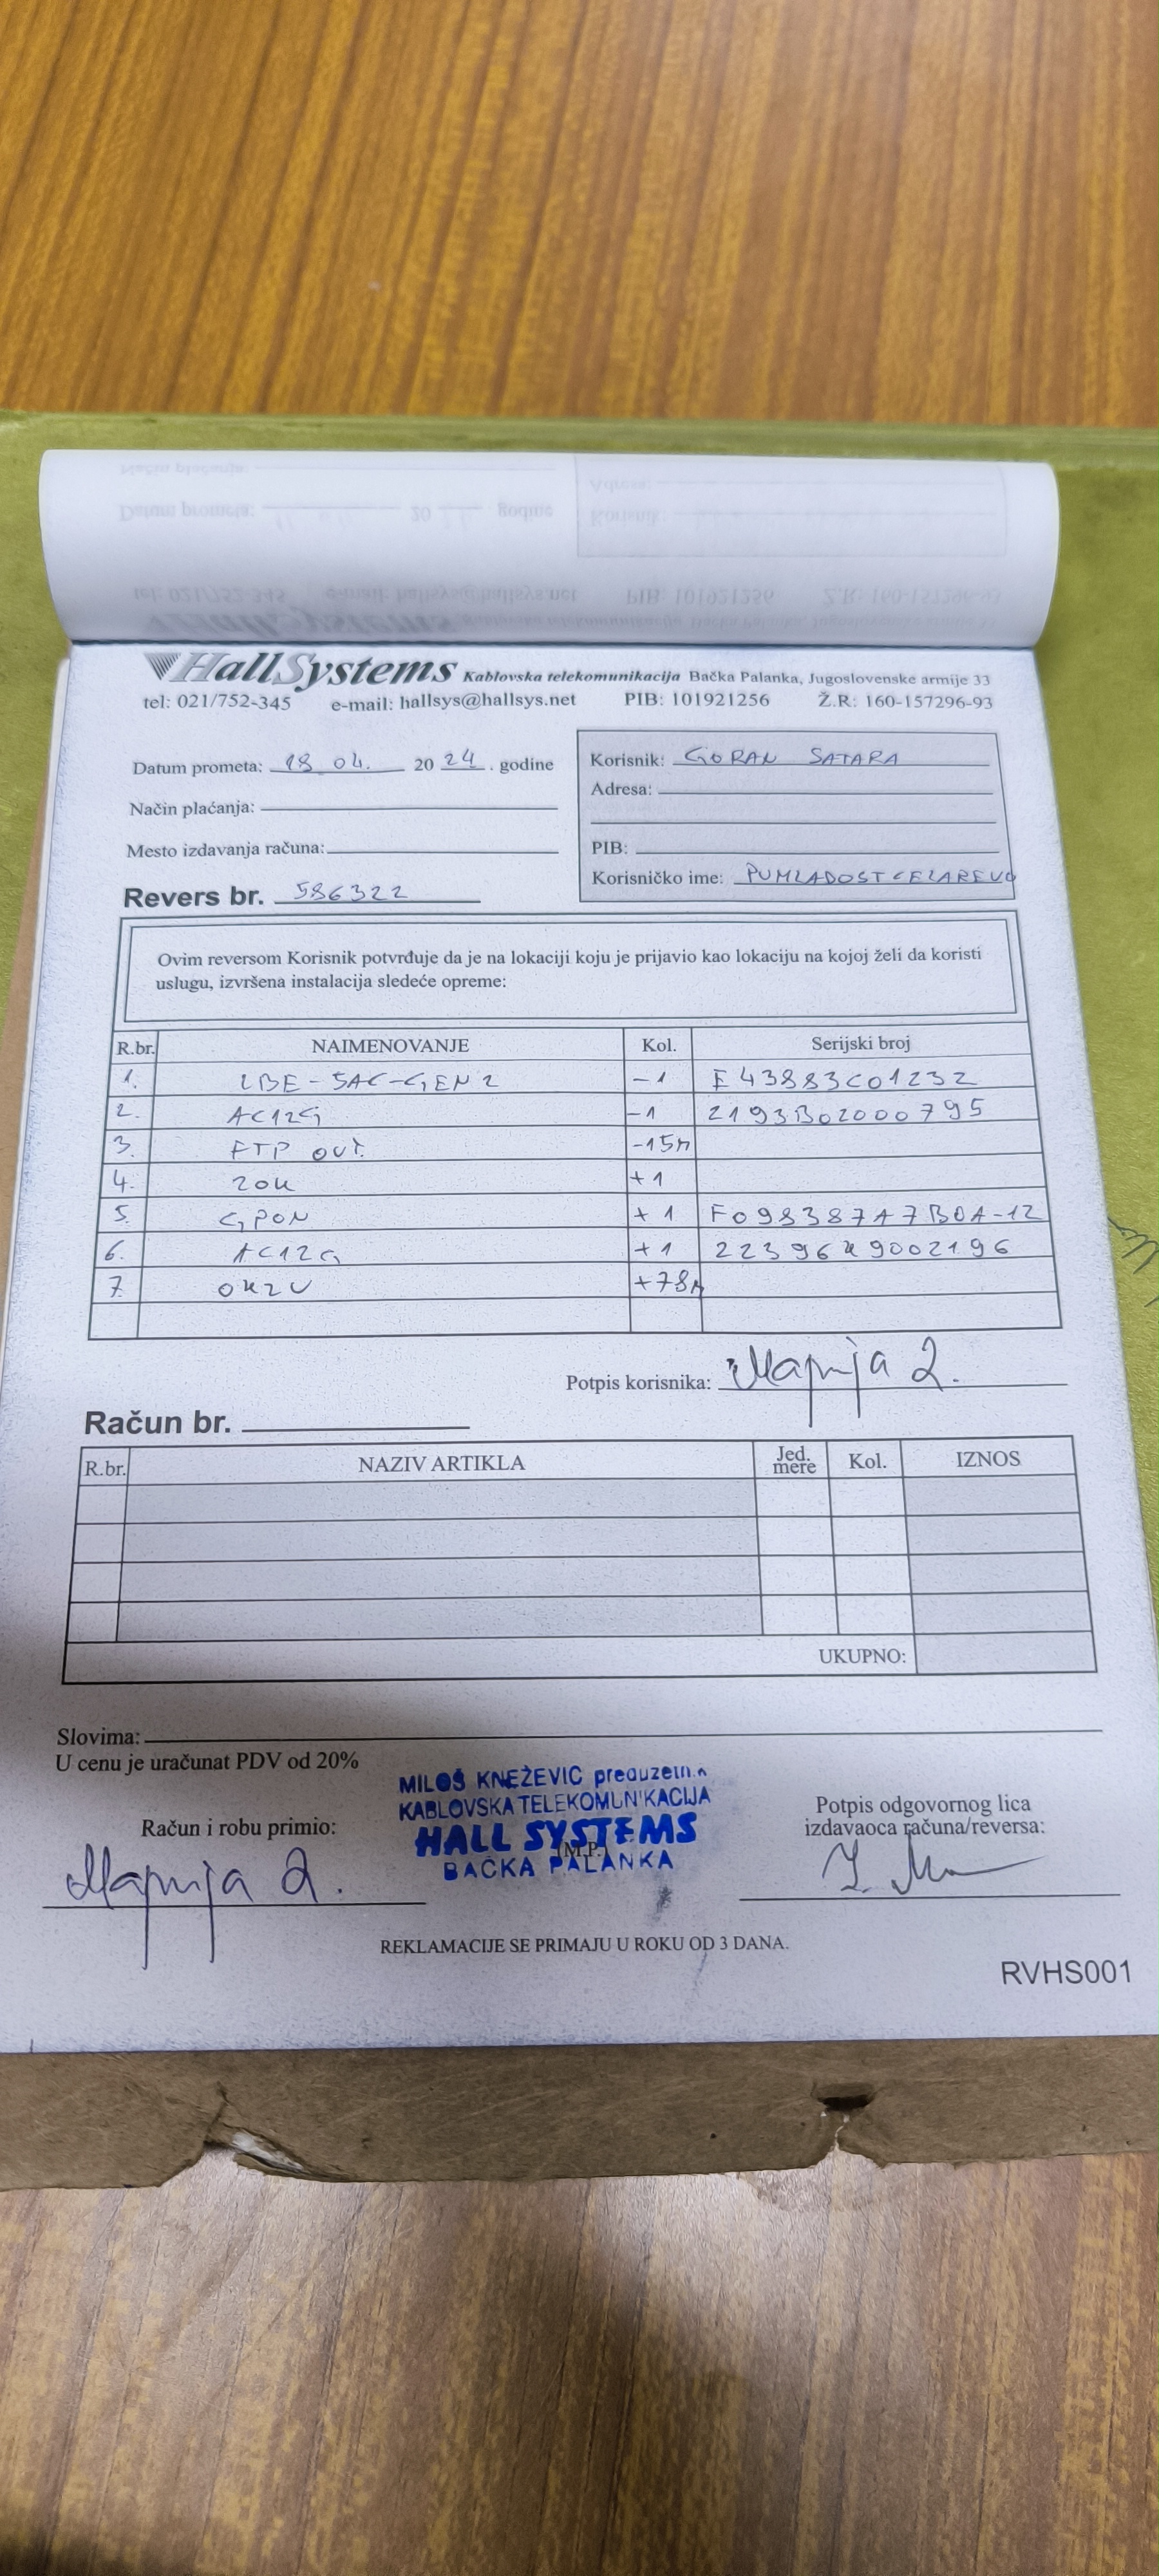 HallSystems Kablovska telekomunikacija Bačka Palanka, Jugoslovenske armije 33
tel: 021/752-345 e-mail: hallsys@hallsys.net PIB: 101921256 Ž.R: 160-157296-93
Datum prometa: 18 04. 20 24 . godine
Način plaćanja:
Mesto izdavanja računa:
Revers br. 586322
Korisnik: GORAN SATARA
Adresa:
PIB:
Korisničko ime: PUMLADOSTCELAREVO
Ovim reversom Korisnik potvrđuje da je na lokaciji koju je prijavio kao lokaciju na kojoj želi da koristi
uslugu, izvršena instalacija sledeće opreme:
R.br. NAIMENOVANJE Kol. Serijski broj
1. LBE-5AC-GEN2 -1 E43883C01232
2. AC12G -1 2193B02000795
3. FTP OUT. -15m
4. ZOK +1
5. GPON + 1 F098387A7B0A-12
6. AC12G +1 22396K9002196
7. OK2V +78m
Potpis korisnika: Марија Д.
Račun br.
R.br. NAZIV ARTIKLA Jed. mere Kol. IZNOS
UKUPNO:
Slovima:
U cenu je uračunat PDV od 20%
MILOŠ KNEŽEVIĆ preduzetnik
KABLOVSKA TELEKOMUNIKACIJA
HALL SYSTEMS
(M.P.)
BAČKA PALANKA
Račun i robu primio:
Марија Д.
Potpis odgovornog lica
izdavaoca računa/reversa:
REKLAMACIJE SE PRIMAJU U ROKU OD 3 DANA.
RVHS001